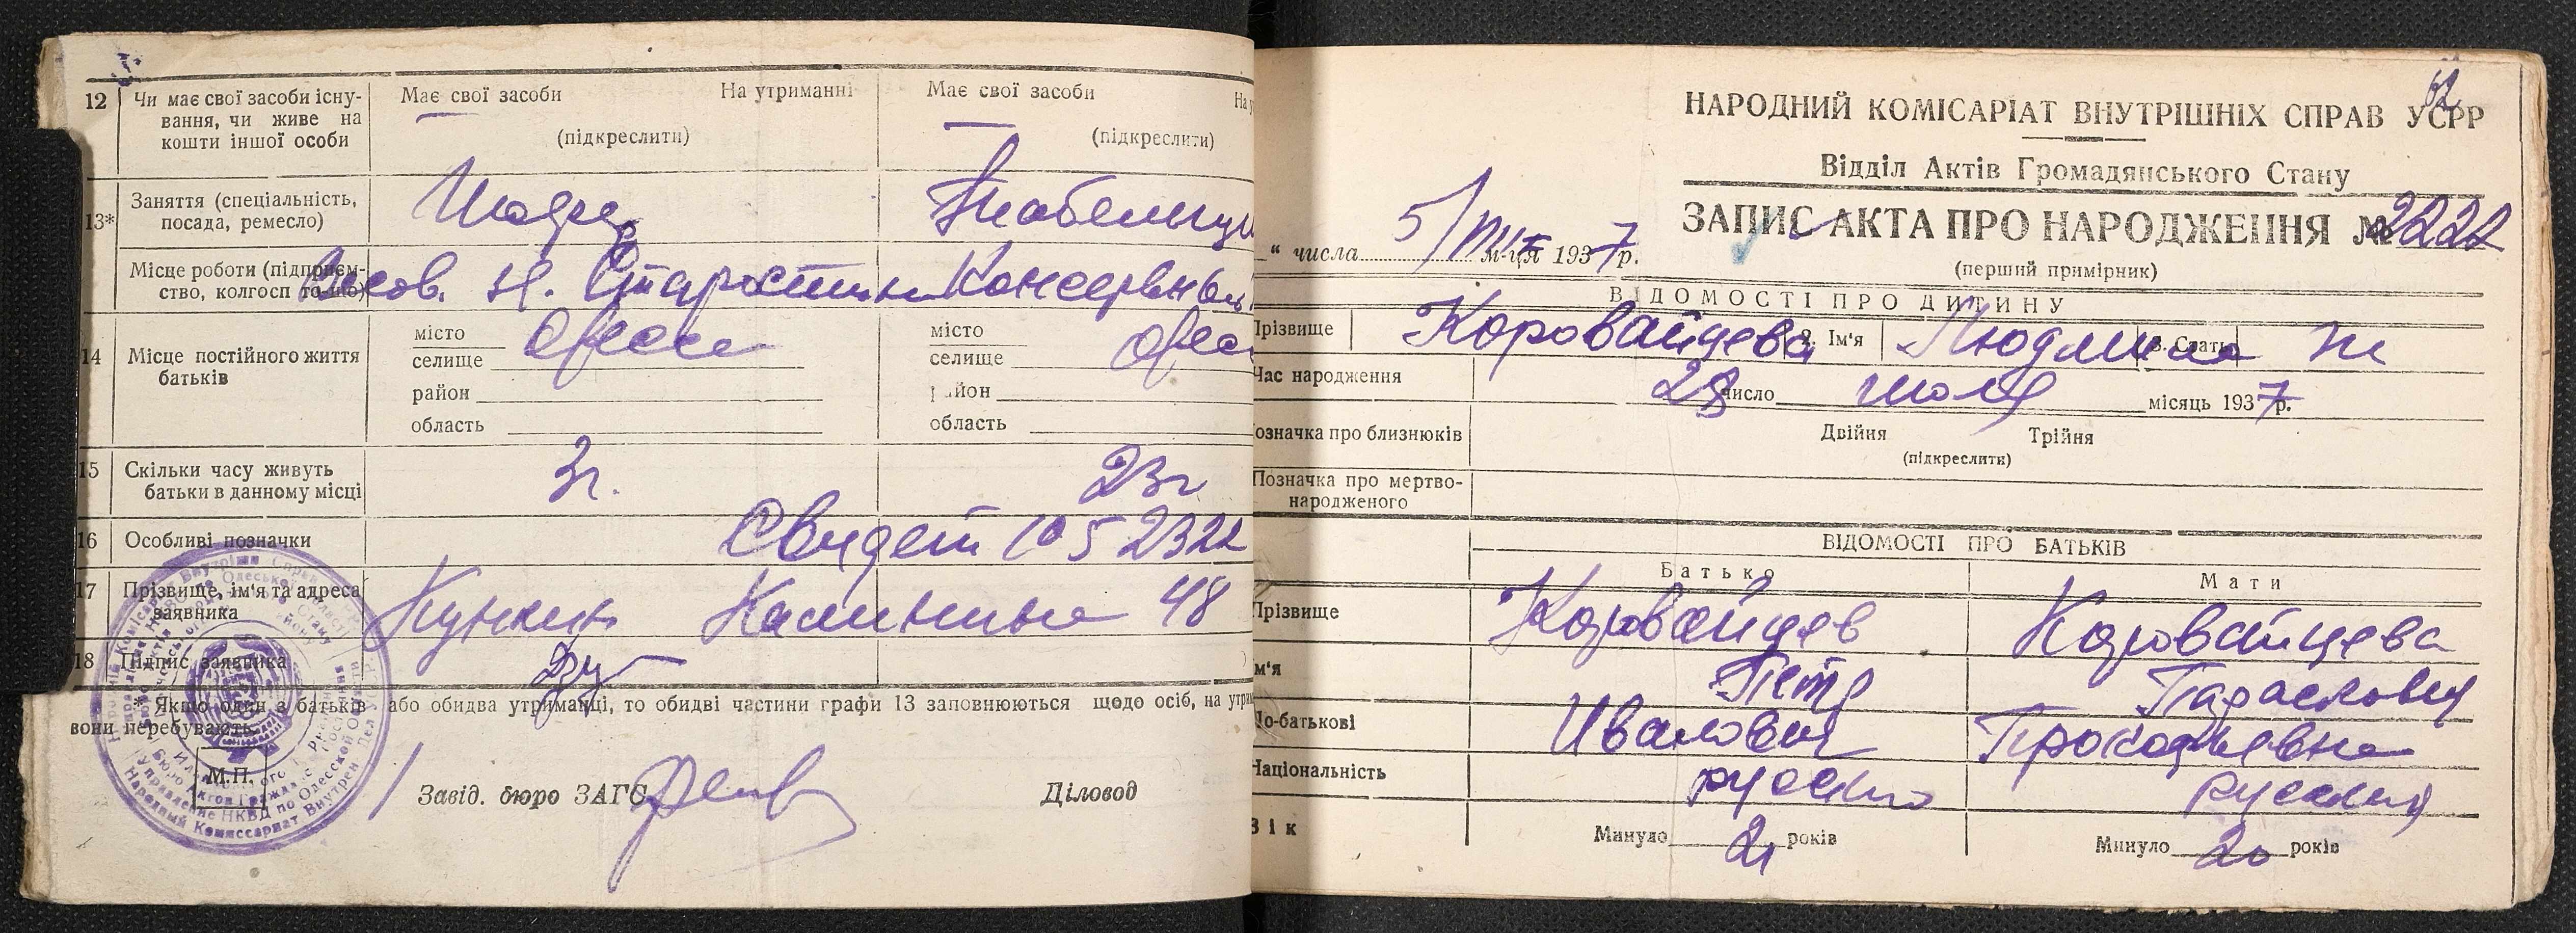 12 Чи має свої засоби існу-
вання, чи живе на
кошти іншої особи
Має свої засоби На утриманні
(підкреслити)
Має свої засоби
(підкреслити)
13* Заняття (спеціальність,
посада, ремесло)
Місце роботи (підприєм-
ство, колгосп то-що)
14 Місце постійного життя
батьків
місто Одесса
селище
район
область
місто
селище
район
область
15 Скільки часу живуть
батьки в данному місці
3г.
23г
16 Особливі позначки
Свидет
17 Прізвище, ім'я та адреса
заявника
48
18 Підпис заявника
* Якщо один з батьків або обидва утриманці, то обидві частини графи 13 заповнюються щодо осіб, на
вони перебувають.
М.П.
Завід. бюро ЗАГС
Діловод
НАРОДНИЙ КОМІСАРІАТ ВНУТРІШНІХ СПРАВ УСРР
Відділ Актів Громадянського Стану
ЗАПИС АКТА ПРО НАРОДЖЕННЯ № 2222
(перший примірник)
" числа 5/VIII м-ця 1937р.
ВІДОМОСТІ ПРО ДИТИНУ
Прізвище Коровайцева 2. Ім'я Людмила 3. Стать ж
Час народження 28 число июля місяць 1937р.
Позначка про близнюків Двійня Трійня
(підкреслити)
Позначка про мертво-
народженого
ВІДОМОСТІ ПРО БАТЬКІВ
Батько Мати
Прізвище Коровайцев Коровайцева
Ім'я Петр
По-батькові Иванович
Національність русский русская
Вік Минуло 21 років Минуло 20 років